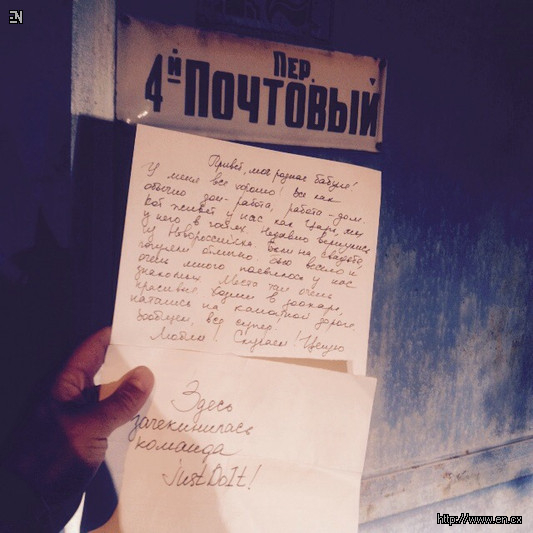 EN
Пер.
4й ПОЧТОВЫЙ
Привет, моя родная бабуля!
У меня все хорошо! Все как
обычно дом-работа, работа-дом.
Кот живёт у нас как царь, мы
у него в гостях. Недавно вернулись
из Новороссийска. Были на свадьбе,
погуляли отлично. Было весело и
очень много появилось у нас
знакомых. Места там очень
красивые. Ходили в зоопарк,
катались на канатной дороге,
вообщем, все супер.
Люблю! Скучаем! Целую
Здесь
зачекинилась
команда
JustDoIt!
http://www.en.cx